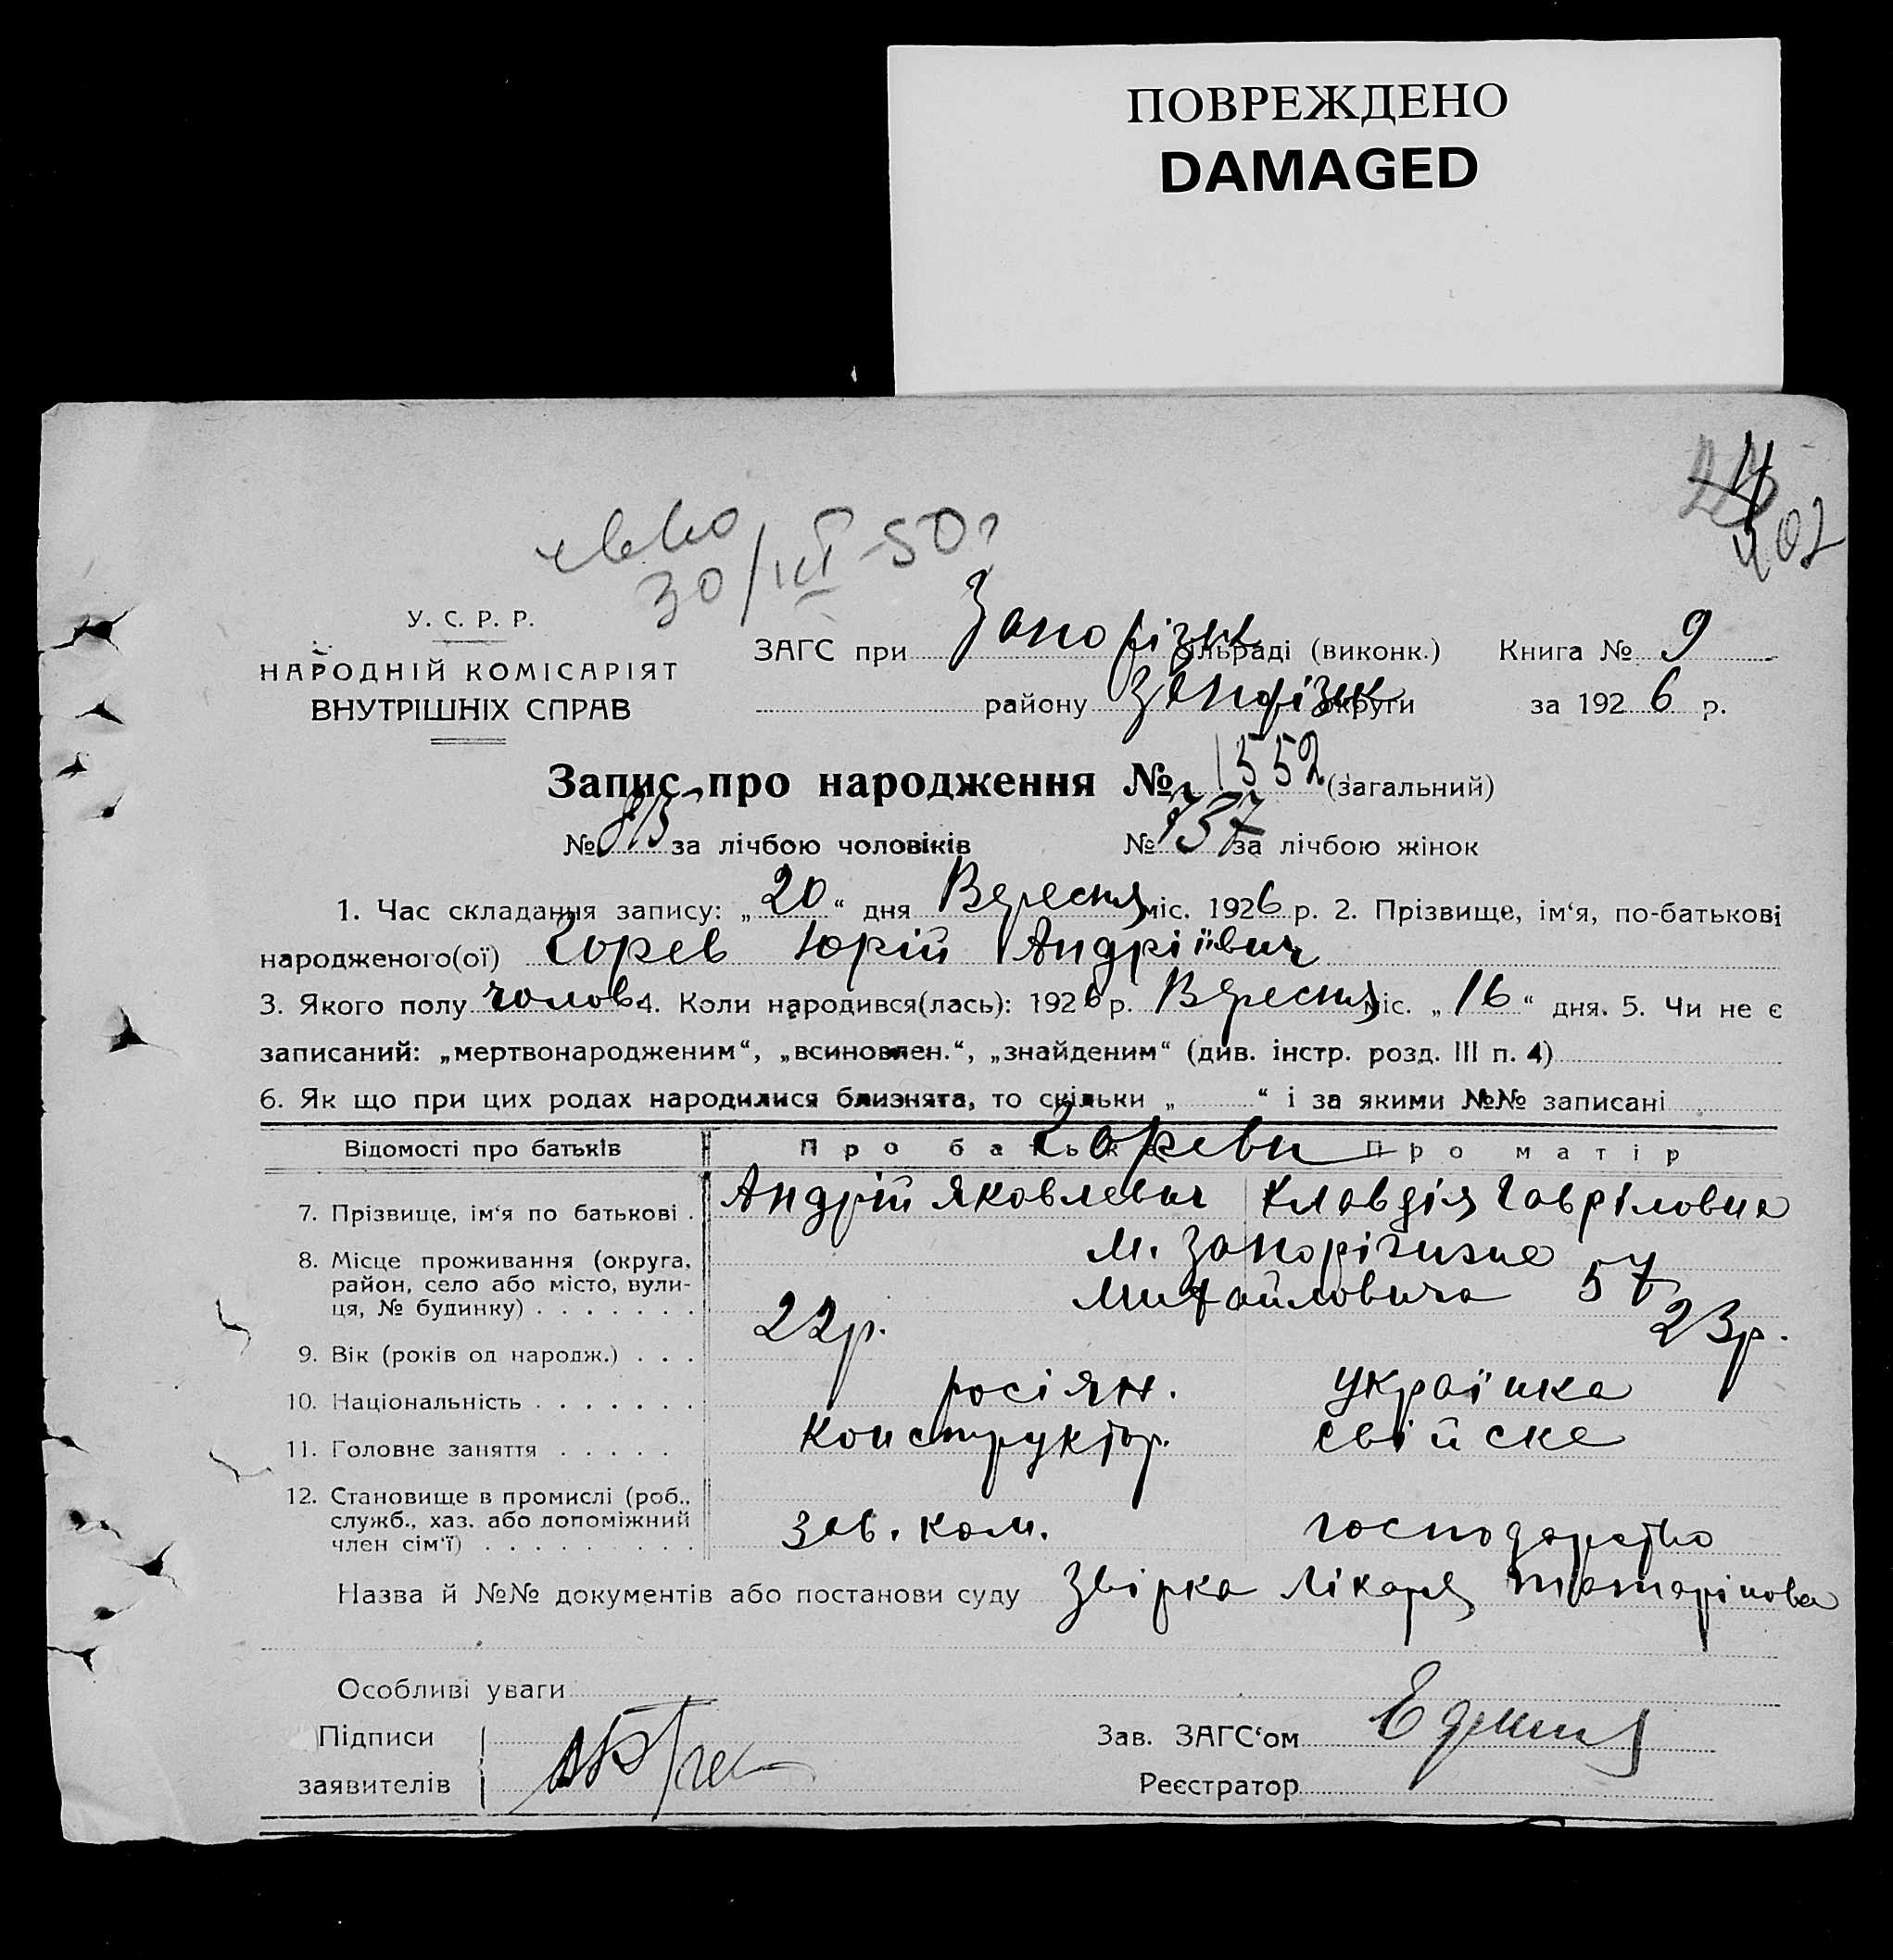 ПОВРЕЖДЕНО
DAMAGED
202
30/III-50г
У. С. Р. Р.
НАРОДНІЙ КОМІСАРІЯТ
ВНУТРІШНІХ СПРАВ
ЗАГС при Запорізьк сільраді (виконк.) Книга № 9
району Запорізьк округи за 1926 р.
Запис про народження № 1552 (загальний)
№ 815 за лічбою чоловіків № 737 за лічбою жінок
1. Час складання запису: „20“ дня Вересня міс. 1926 р. 2. Прізвище, ім‘я, по-батькові
народженого(ої) Горев Юрій Андріївич
3. Якого полу чолов. 4. Коли народився(лась): 1926 р. Вересня міс. „16“ дня. 5. Чи не є
записаний: „мертвонародженим“, „всиновлен.“, „знайденим“ (див. інстр. розд. III п. 4)
6. Як що при цих родах народилися близнята, то скільки „ “ і за якими №№ записані
Відомості про батьків Про батька Про матір
Гореви
7. Прізвище, ім‘я по батькові . Андрій Яковлевич Клавдія Гавріловна
8. Місце проживання (округа, м. Запоріжжя
район, село або місто, вули-
ця, № будинку) . . . . . . . Михайловича 57
9. Вік (років од народж.) . . . 22р. 23р.
10. Національність . . . . . . . росіян. українка
11. Головне заняття . . . . . конструктор. свійске
12. Становище в промислі (роб.,
служб., хаз. або допоміжний
член сім‘ї) . . . . . . . . . зав. ком. господарство
Назва й №№ документів або постанови суду Звірка лікаря Татарінова
Особливі уваги
Підписи Зав. ЗАГС‘ом
заявителів Реєстратор